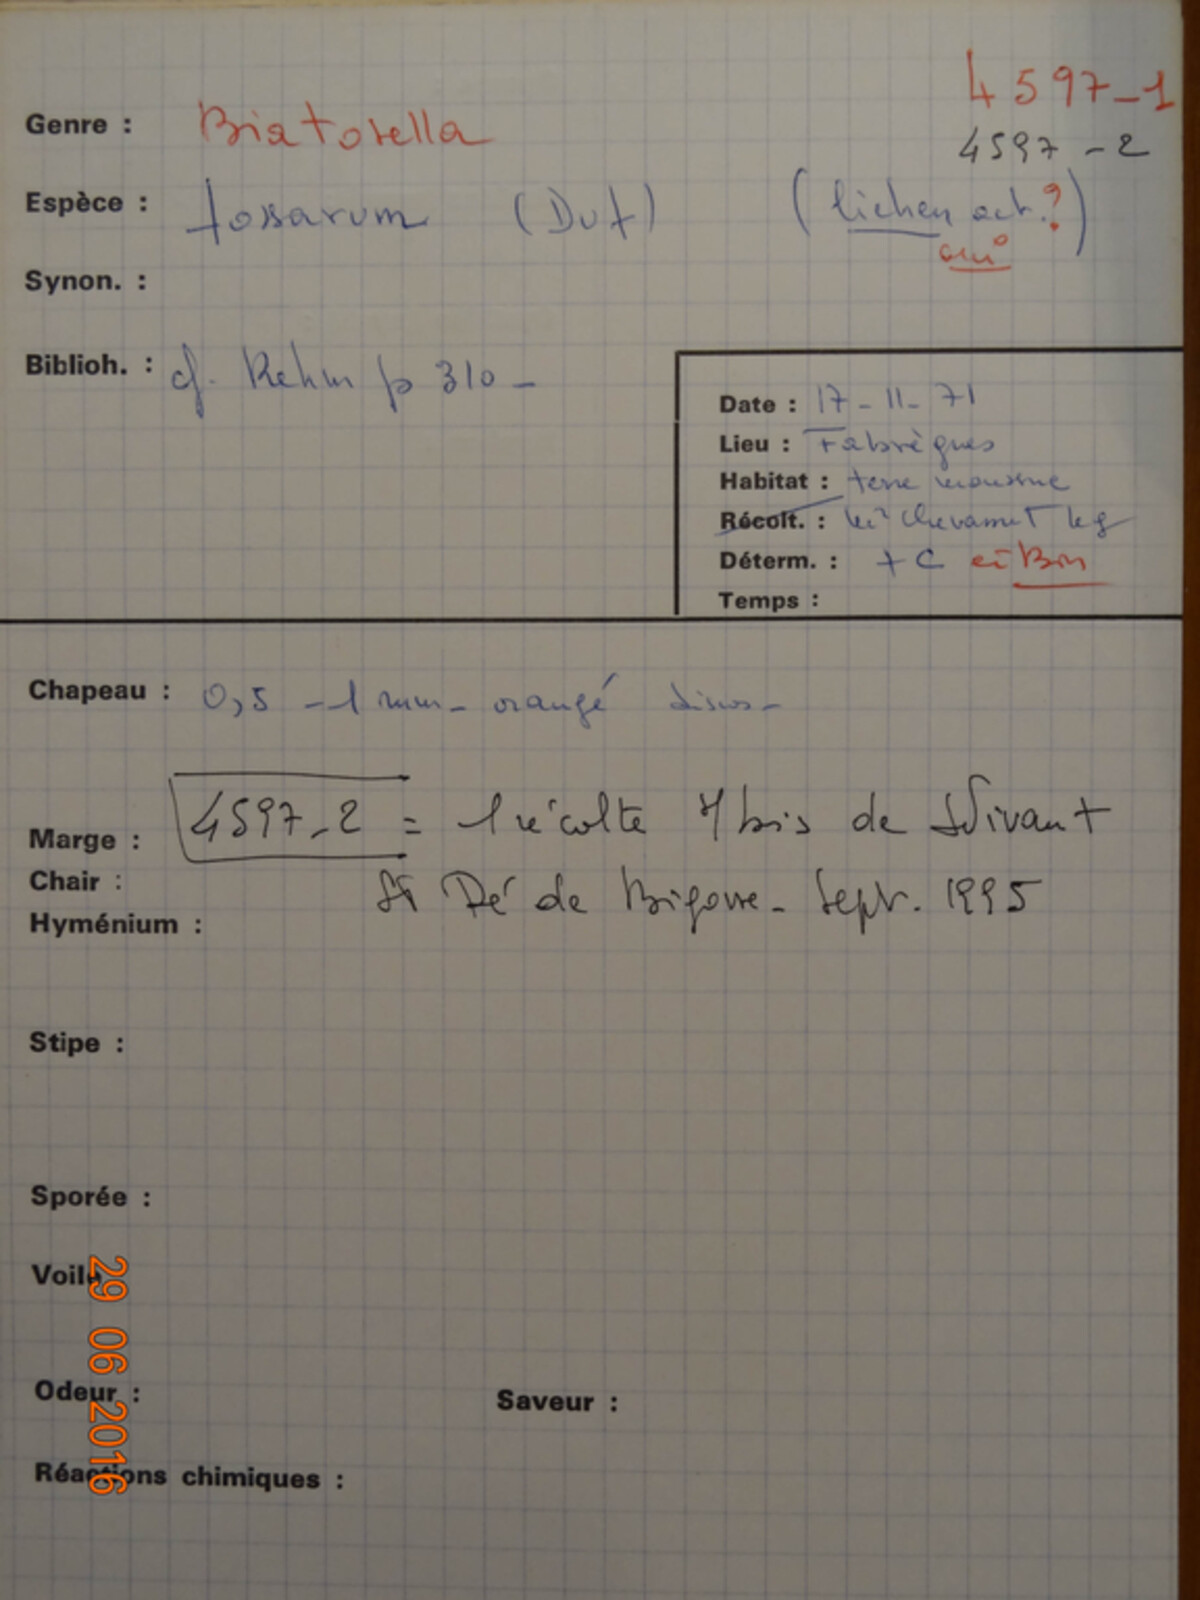 4597-1
Genre : Biatorella
4597-2
Espèce : fossarum (Duf) (lichen act.?)
oui
Synon. :
Biblioh. : cf. Rehm p 310 -
Date : 17-11-71
Lieu : Fabrègues
Habitat : terre moussue
Récolt. : Chevassut leg
Déterm. : + C
Temps :
Chapeau : 0,5 - 1 mm - orangé
Marge : 4597-2 = 1 récolte 7 bis de Vivant
Chair : St Pé de Bigorre - Sept. 1995
Hyménium :
Stipe :
Sporée :
Voile
Odeur : Saveur :
Réactions chimiques :
29 06 2016